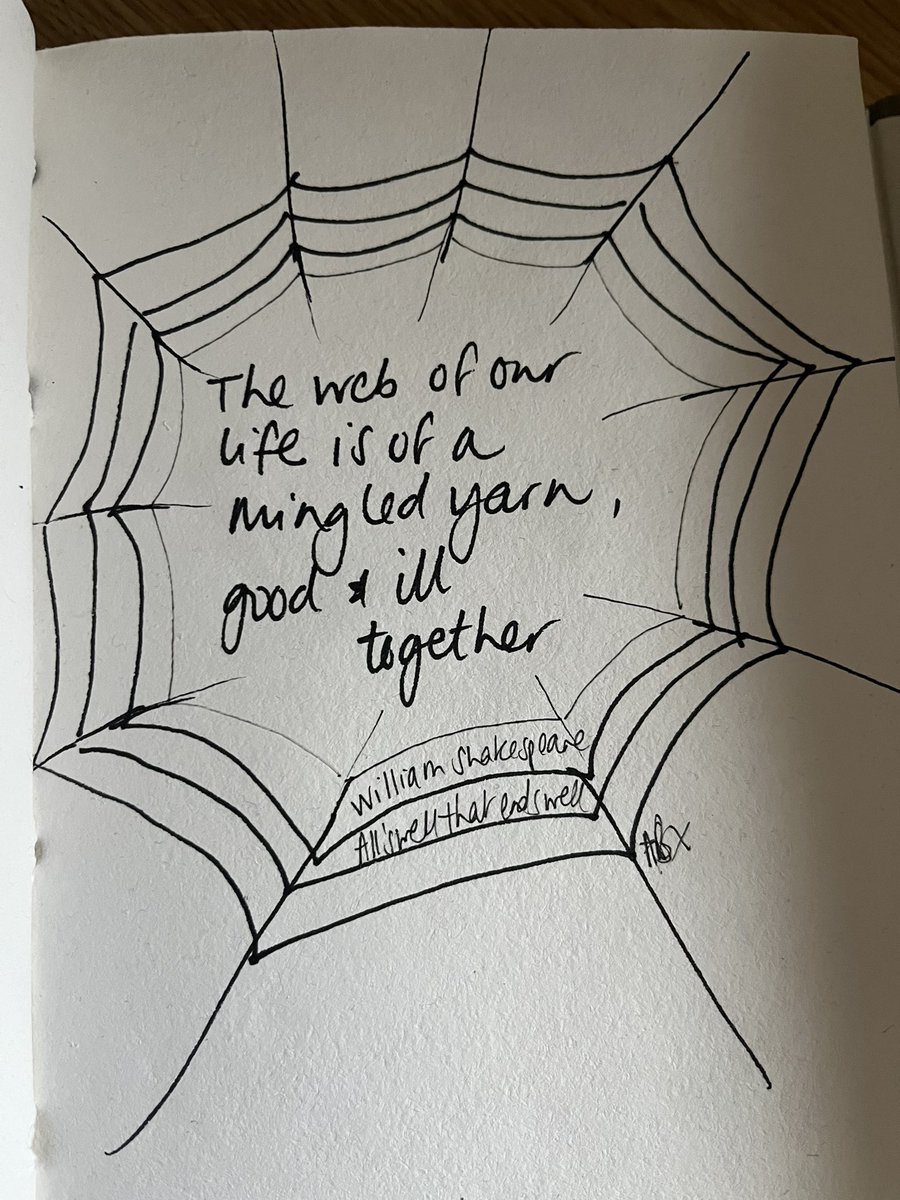 The web of our
life is of a
mingled yarn,
good & ill
together
William Shakespeare
All's well that ends well